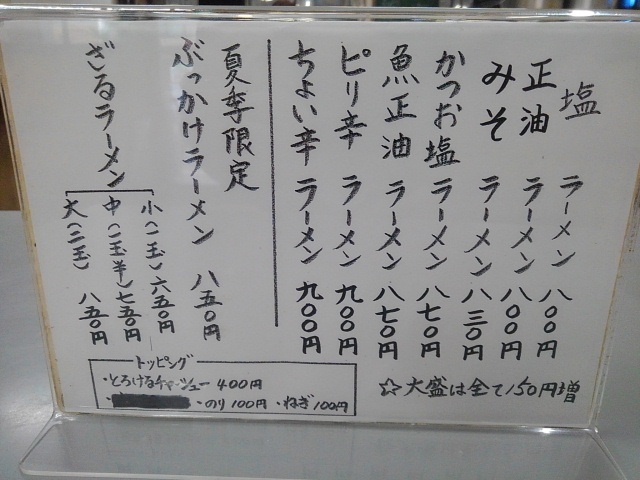 塩ラーメン 八〇〇円
正油ラーメン 八〇〇円
みそラーメン 八三〇円
かつお塩ラーメン 八七〇円
魚正油ラーメン 八七〇円
ピリ辛ラーメン 九〇〇円
ちょい辛ラーメン 九〇〇円
☆大盛は全て150円増
夏季限定
ぶっかけラーメン 八五〇円
ざるラーメン
小(一玉)六五〇円
中(一玉半)七五〇円
大(二玉)八五〇円
トッピング
・とろけるチャーシュー 400円
・のり100円 ・ねぎ100円